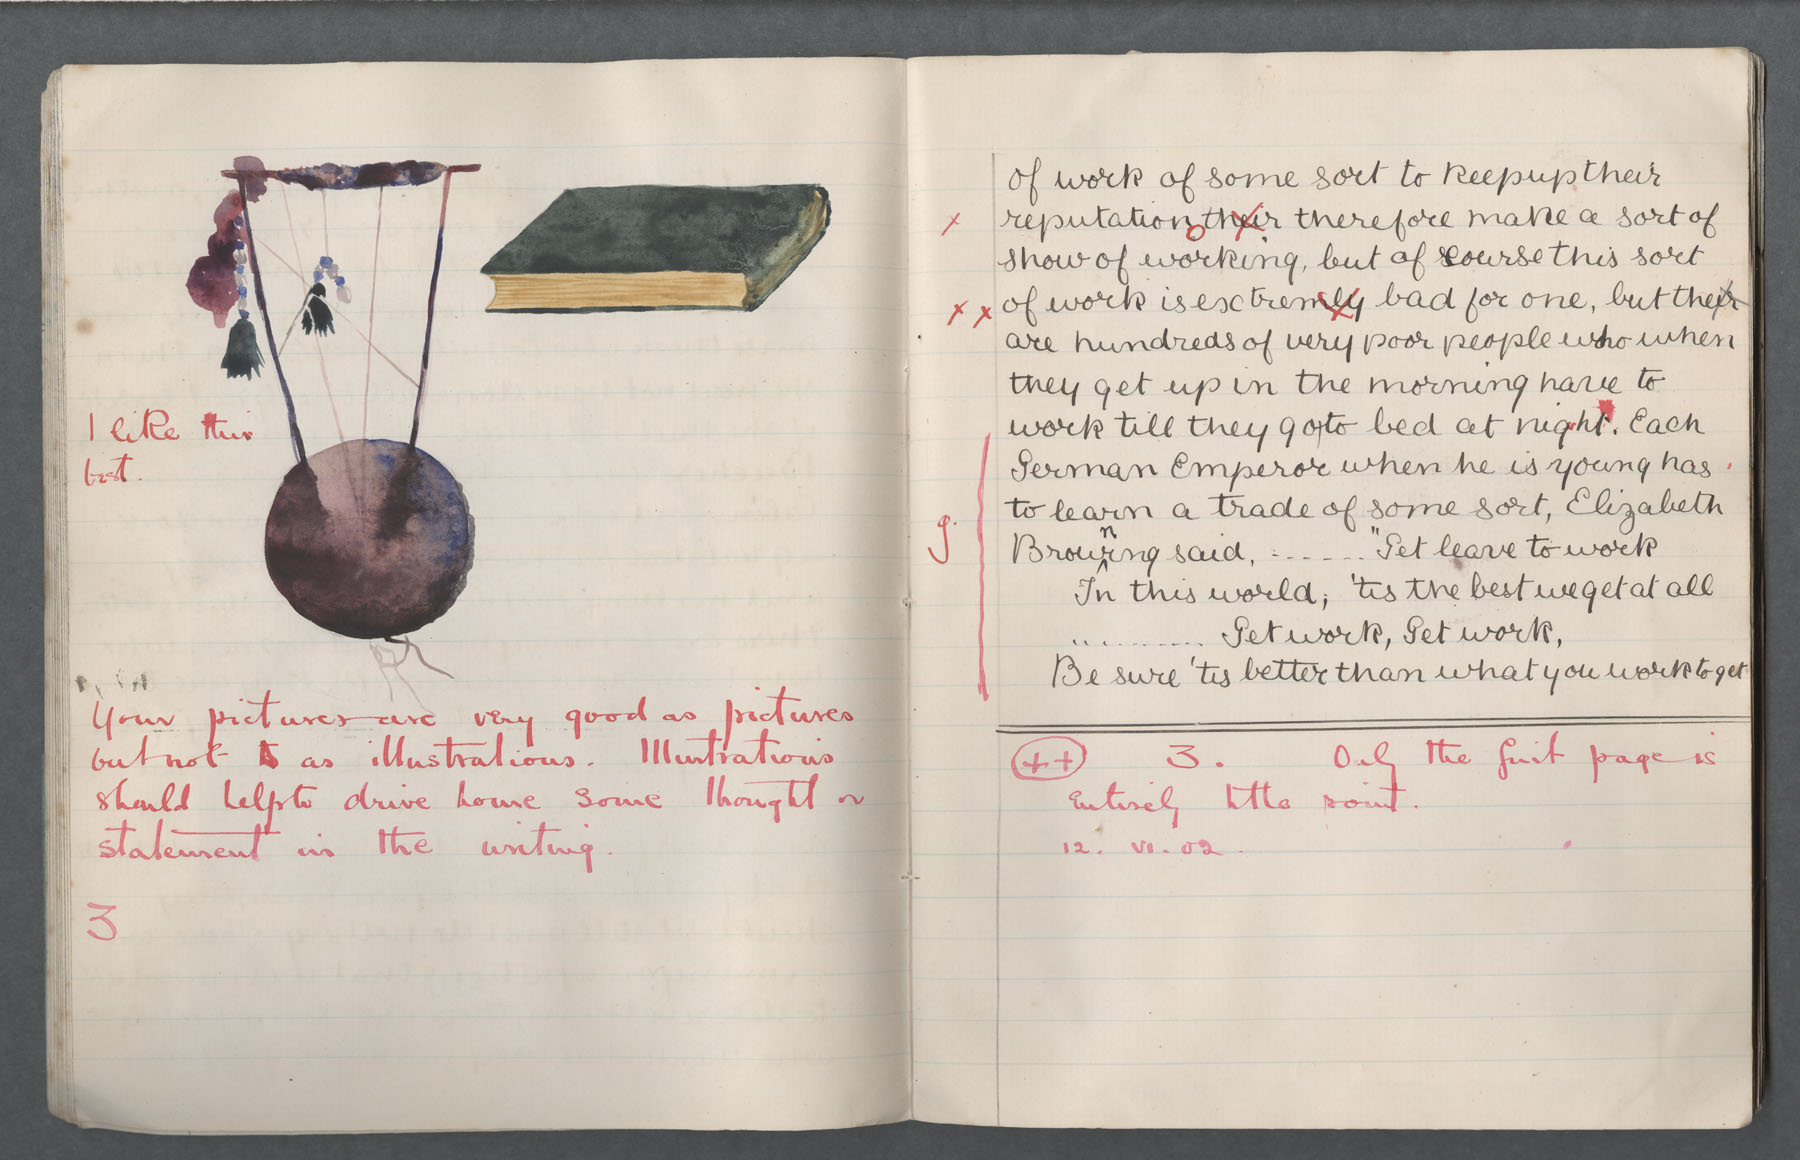 I like this
best.
Your pictures are very good as pictures
but not as illustrations. Illustrations
should help to drive home some thought or
statement in the writing.
3
of work of some sort to keep up their
x reputation their therefore make a sort of
show of working, but of course this sort
x x of work is extremly bad for one, but their
are hundreds of very poor people who when
they get up in the morning have to
work till they go to bed at night. Each
German Emperor when he is young has
to learn a trade of some sort, Elizabeth
g. Browning said, ...... "Get leave to work
In this world; 'tis the best we get at all
.......... Get work, Get work,
Be sure 'tis better than what you work to get
++ 3. Only the first page is
entirely to the point.
12. VI. 02.